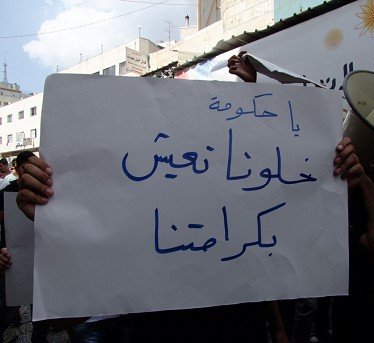 يا حكومة
خلونا نعيش
بكرامتنا